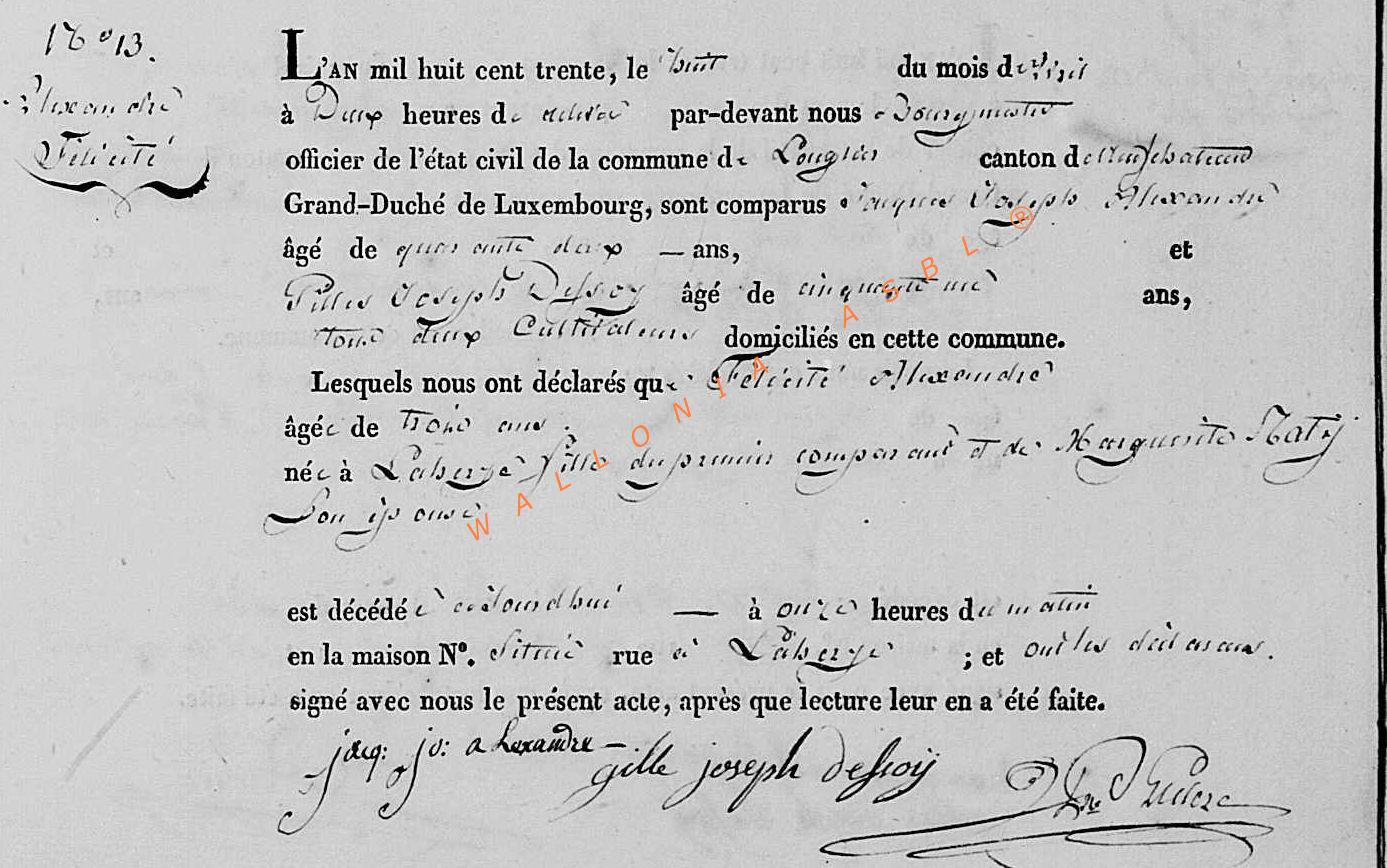 N° 13.
Alexandre
Félicité
L'AN mil huit cent trente, le huit du mois d'avril
à Deux heures de relevée par-devant nous Bourgmestre
officier de l'état civil de la commune de Longlier canton de Neufchateau
Grand-Duché de Luxembourg, sont comparus Jacques Joseph Alexandre
âgé de quarante deux — ans, et
Gilles Joseph Dessoy âgé de cinquante ans,
tous deux Cultivateurs domiciliés en cette commune.
Lesquels nous ont déclarés que Félicité Alexandre
âgée de trois ans.
née à Laherye fille du premier comparant et de Marguerite Naty
Son épouse
est décédée aujourdhui — à onze heures du matin
en la maison N°. Située rue à Laherye ; et ont les déclarans.
signé avec nous le présent acte, après que lecture leur en a été faite.
jacq: jo: alexandre —
gille joseph dessoij
WALLONIA ASBL ®